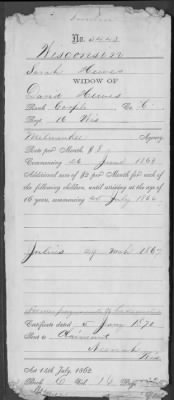 No. 5443
Wisconsin
Sarah Hewes
WIDOW OF
David Hewes
Rank Corp'l Co. C
Regt 16 Wis
Milwaukee Agency
Rate per Month $ 8
Commencing 26 June 1864
Additional sum of $2 per Month for each of
the following children, until arriving at the age of
16 years, commencing 25 July 1866
Julius 29 Mch 1867
Certificate dated 5 Jany 1870
Sent to Claimant
Neenah
Wis
Act 14th July 1862
Book C Vol. 16 Page